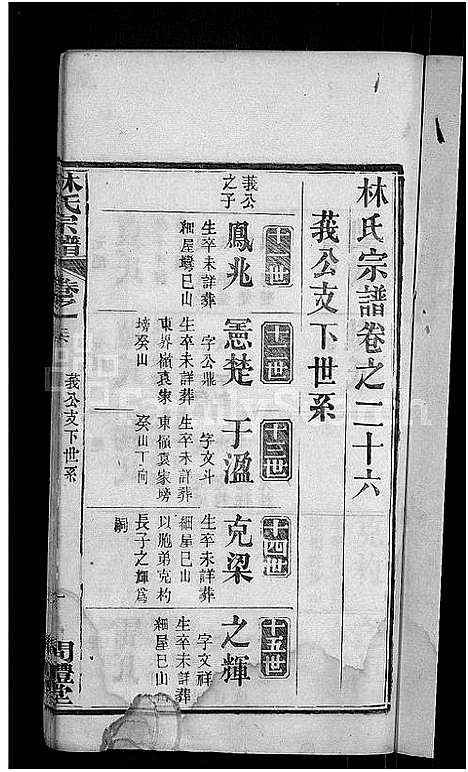 林氏宗譜卷之二十六
莪公支下世系
十一世
莪公
之子
鳳兆
生卒未詳葬
細屋塆巳山
十二世
憲楚
字公鼎
生卒未詳葬
東界嶺袁家
塝癸山
十三世
于溋
字文斗
生卒未詳葬
東嶺袁家塝
癸山丁向
十四世
克梁
生卒未詳葬
細屋巳山
以胞弟克杓
長子之輝爲
嗣
十五世
之輝
字文祥
生卒未詳葬
細屋巳山
林氏宗譜
卷之
莪公支下世系
一